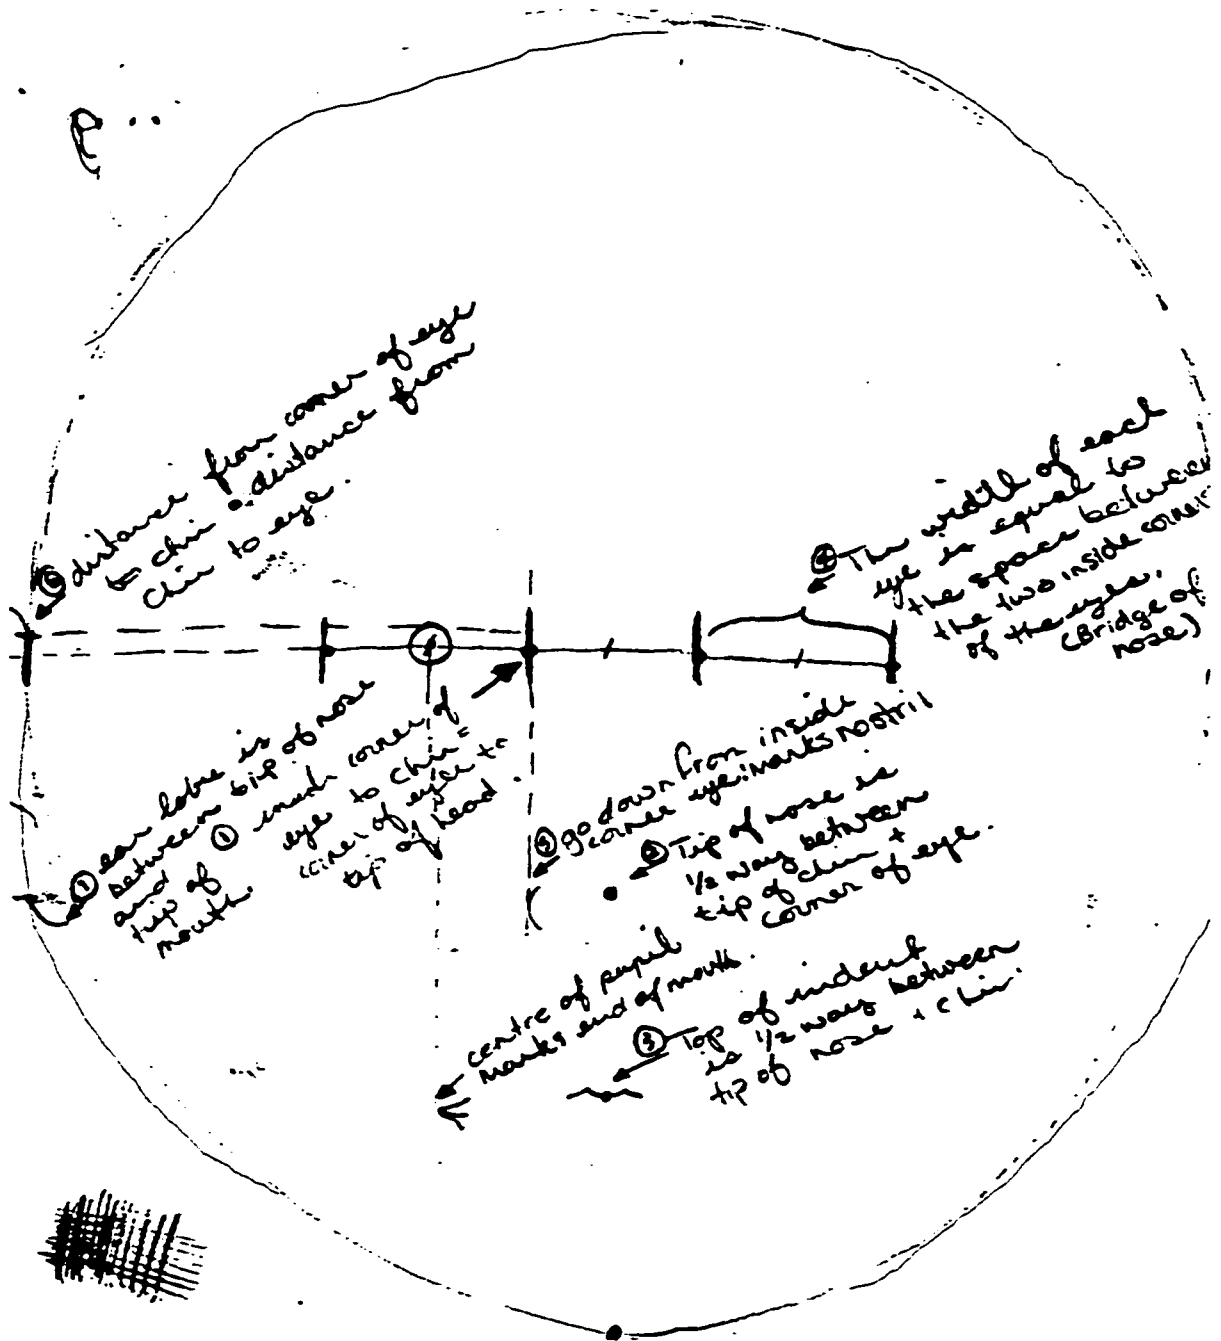 ⑥ distance from corner of eye
to chin = distance from
chin to eye.
④ The width of each
eye is equal to
the space between
the two inside corner
of the eyes.
(Bridge of
nose)
⑦ ear lobe is
between tip of nose
and
tip of
mouth.
① inside corner of
eye to chin =
corner of eye to
tip of head.
⑤ go down from inside
corner eye: marks nostril
② Tip of nose is
1/2 way between
tip of chin +
corner of eye.
centre of pupil
marks end of mouth.
③ Top of indent
is 1/2 way between
tip of nose + chin.